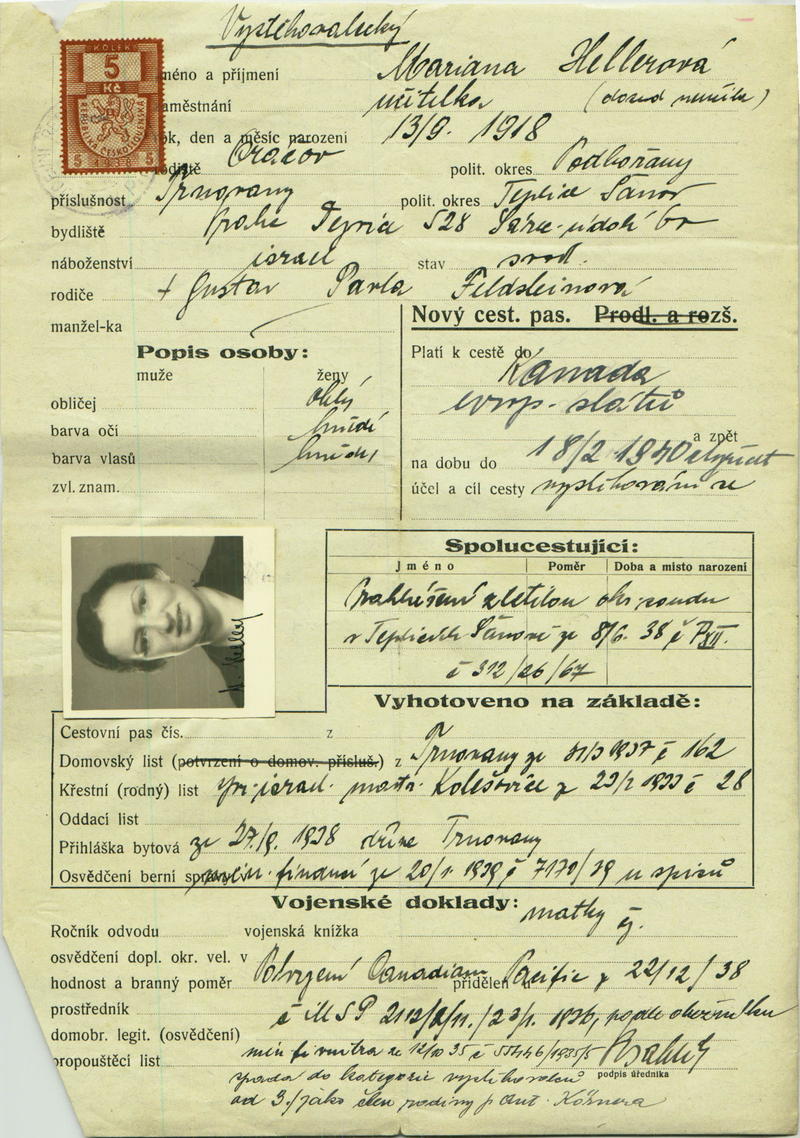 Vystěhovalecký
KOLEK
5
Kč
REPUBLIKA ČESKOSLOVENSKÁ
5 1938 5
méno a příjmení Mariana Hellerová
aměstnání učitelka (dosud neměla)
ok, den a měsíc narození 13/9. 1918
odiště Oráčov polit. okres Podbořany
příslušnost Trnovany polit. okres Teplice Šanov
bydliště Praha 528
náboženství israel stav svob.
rodiče + Gustav Pavla Feldsteinová
manžel-ka
Nový cest. pas. Prodl. a rozš.
Popis osoby:
muže ženy
obličej oblý
barva očí hnědé
barva vlasů hnědé
zvl. znam.
Platí k cestě do Kanada
evrop. států
a zpět
na dobu do 18/2 1940
účel a cíl cesty vystěhování se
Spolucestující:
Jméno Poměr Doba a místo narození
Prohlášení zletilou okr. soudu
v Teplicích Šanově ze 8/6. 38 č
č 312/26/67
Vyhotoveno na základě:
Cestovní pas čís. z
Domovský list (potvrzení o domov. přísluš.) z Trnovany ze 1937 č 162
Křestní (rodný) list israel. matr. z 1933 č 28
Oddací list
Přihláška bytová ze 27/9. 1938 dříve Trnovany
Osvědčení berní správy financí ze 20/1. 1939 č 7170/39 u spisů
matky
Vojenské doklady:
Ročník odvodu vojenská knížka
osvědčení dopl. okr. vel. v
hodnost a branný poměr Potvrzení Canadian přidělen Pacific z 22/12/38
prostředník podle oběžníku
domobr. legit. (osvědčení)
propouštěcí list min vnitra ze 12/10 35 č
podpis úředníka
spadá do kategorie vystěhovalců
od 3./ jako člen rodiny p. Ant. Körnera